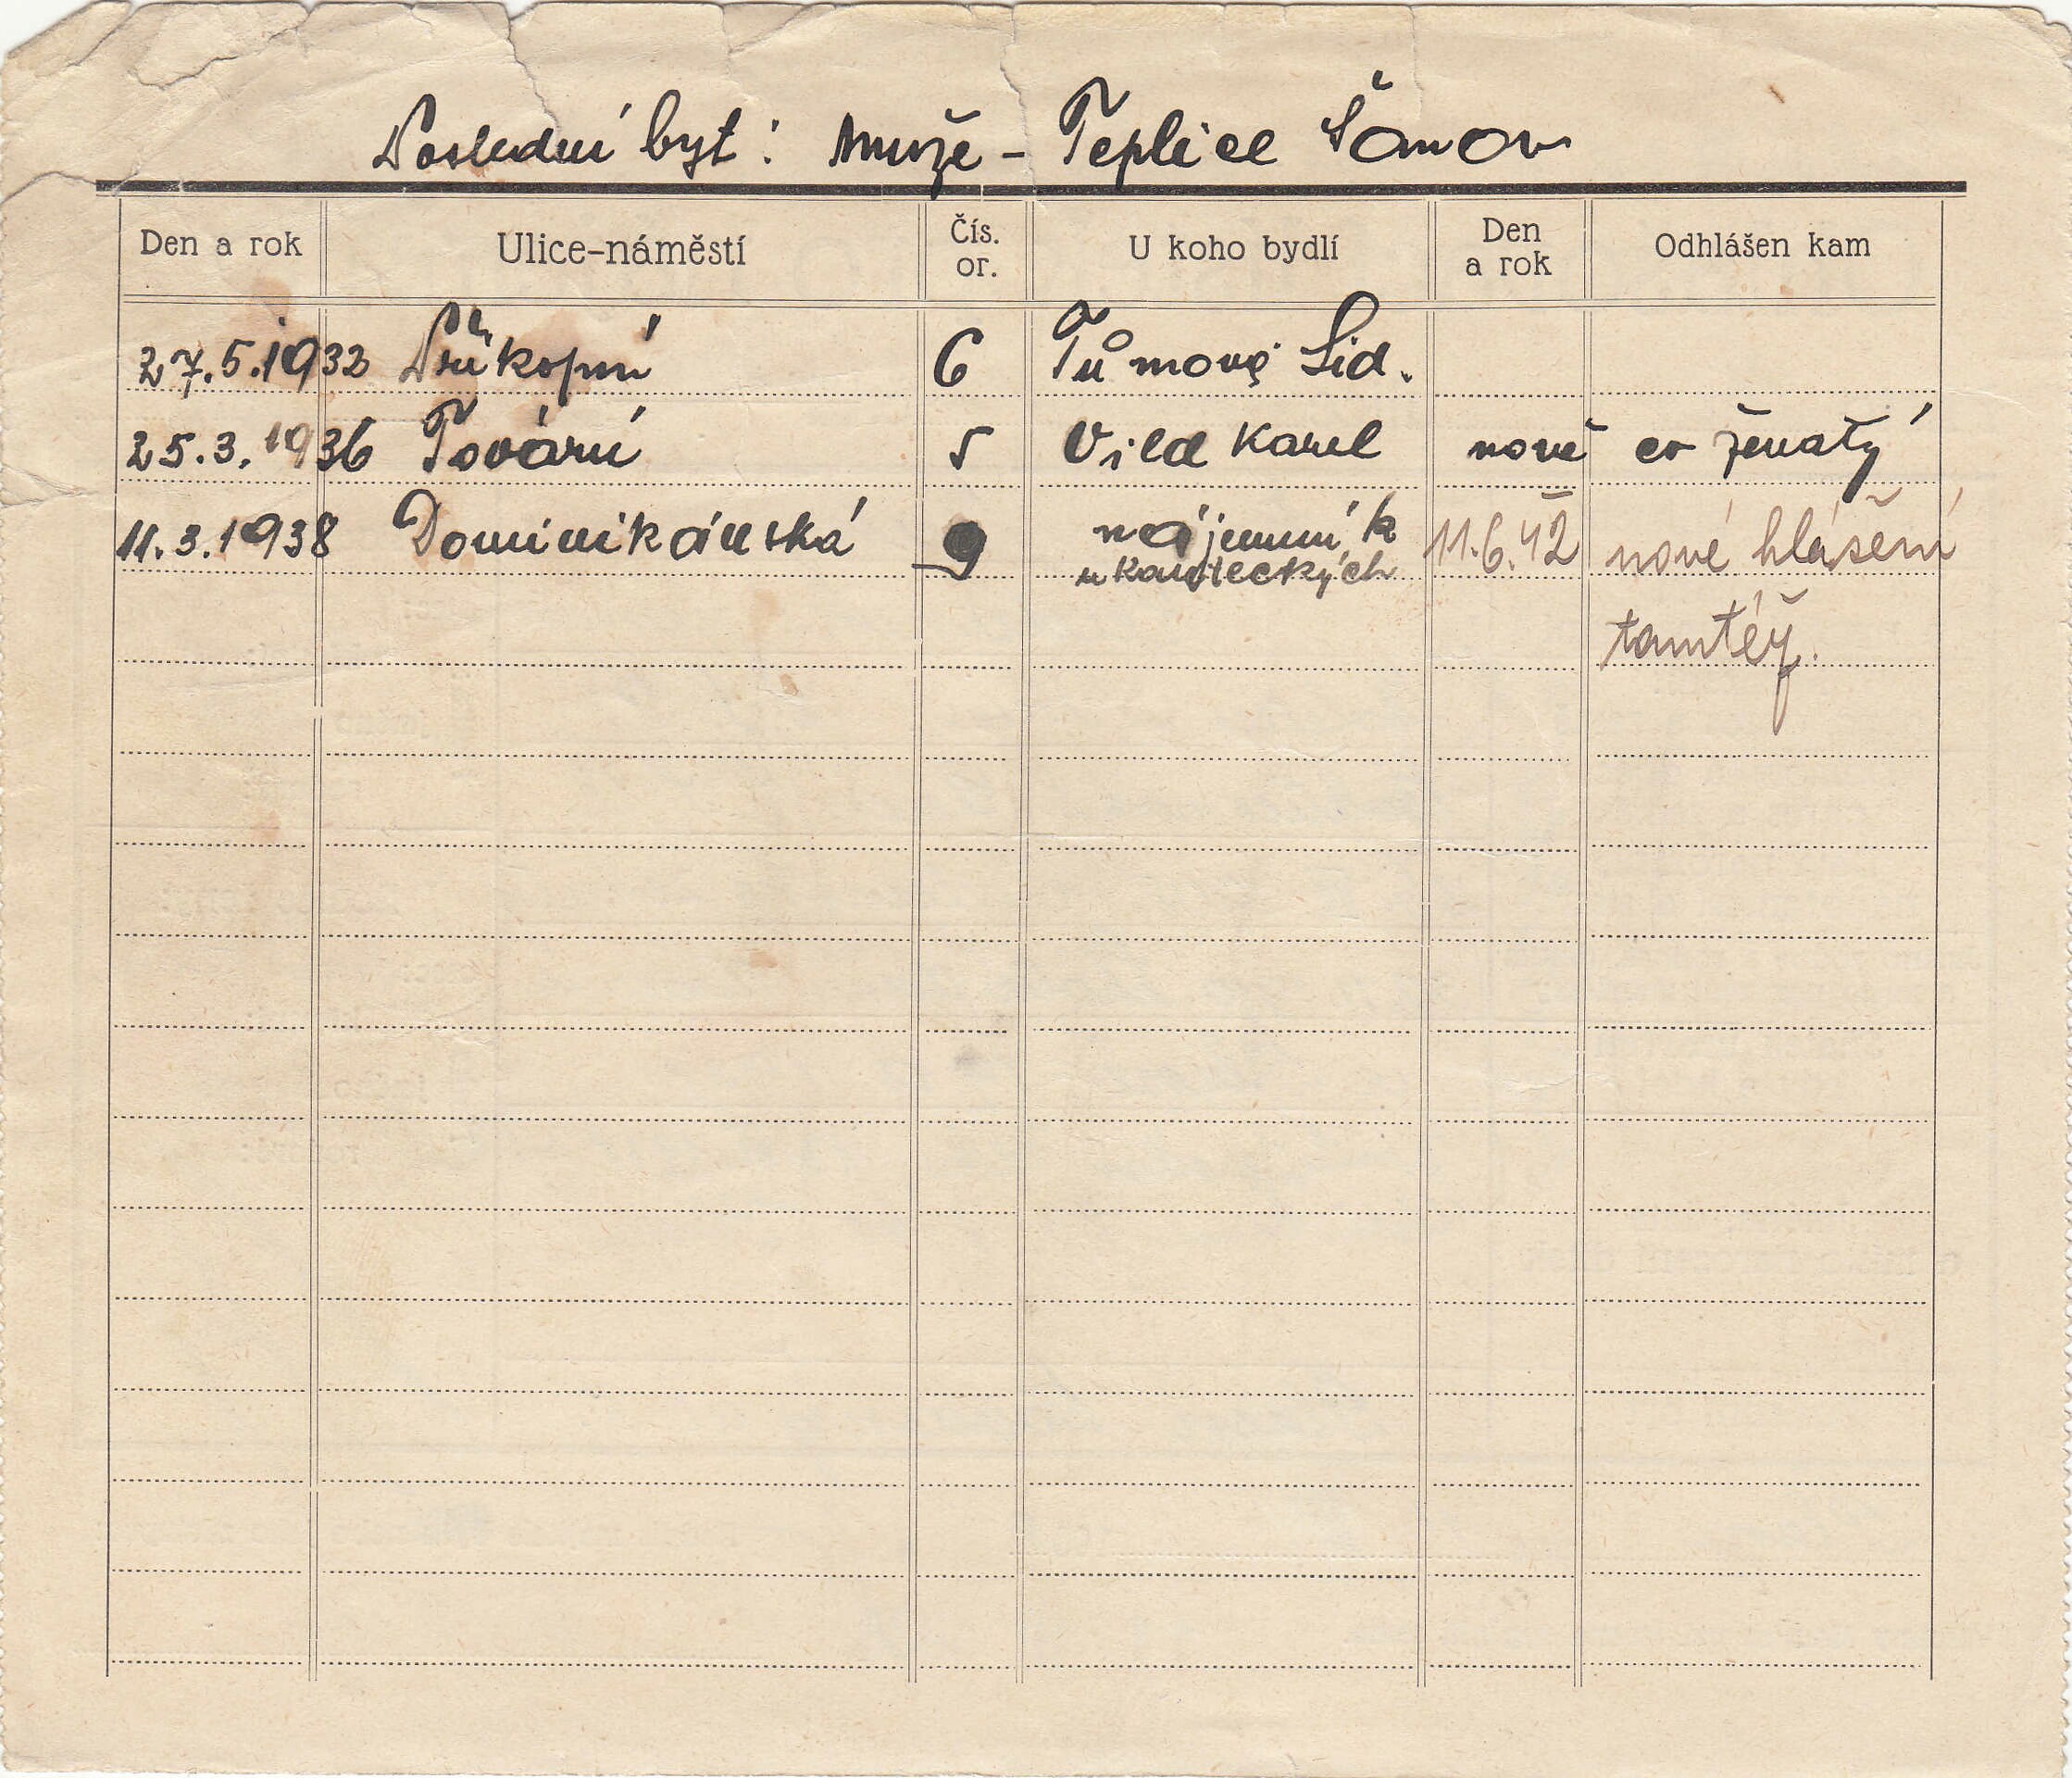 Poslední byt: muže - Teplice Šanov
Den a rok Ulice-náměstí Čís. or. U koho bydlí Den a rok Odhlášen kam
27.5.1932 Příkopní 6 Tůmové Lid.
25.3.1936 Tovární 5 Vild Karel nově co ženatý
11.3.1938 Dominikánská 9 nájemník 11.6.42 nové hlášení
u
tamtéž.